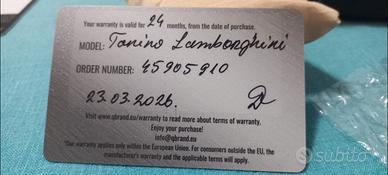 Your warranty is valid for 24 months, from the date of purchase.
MODEL: Tonino Lamborghini
ORDER NUMBER: 45905910
23.03.2026.
Visit www.qbrand.eu/warranty to read more about terms of warranty.
Enjoy your purchase!
info@qbrand.eu
*Our warranty applies only within the European Union. For consumers outside the EU, the
manufacturer's warranty and the applicable terms will apply.
subito